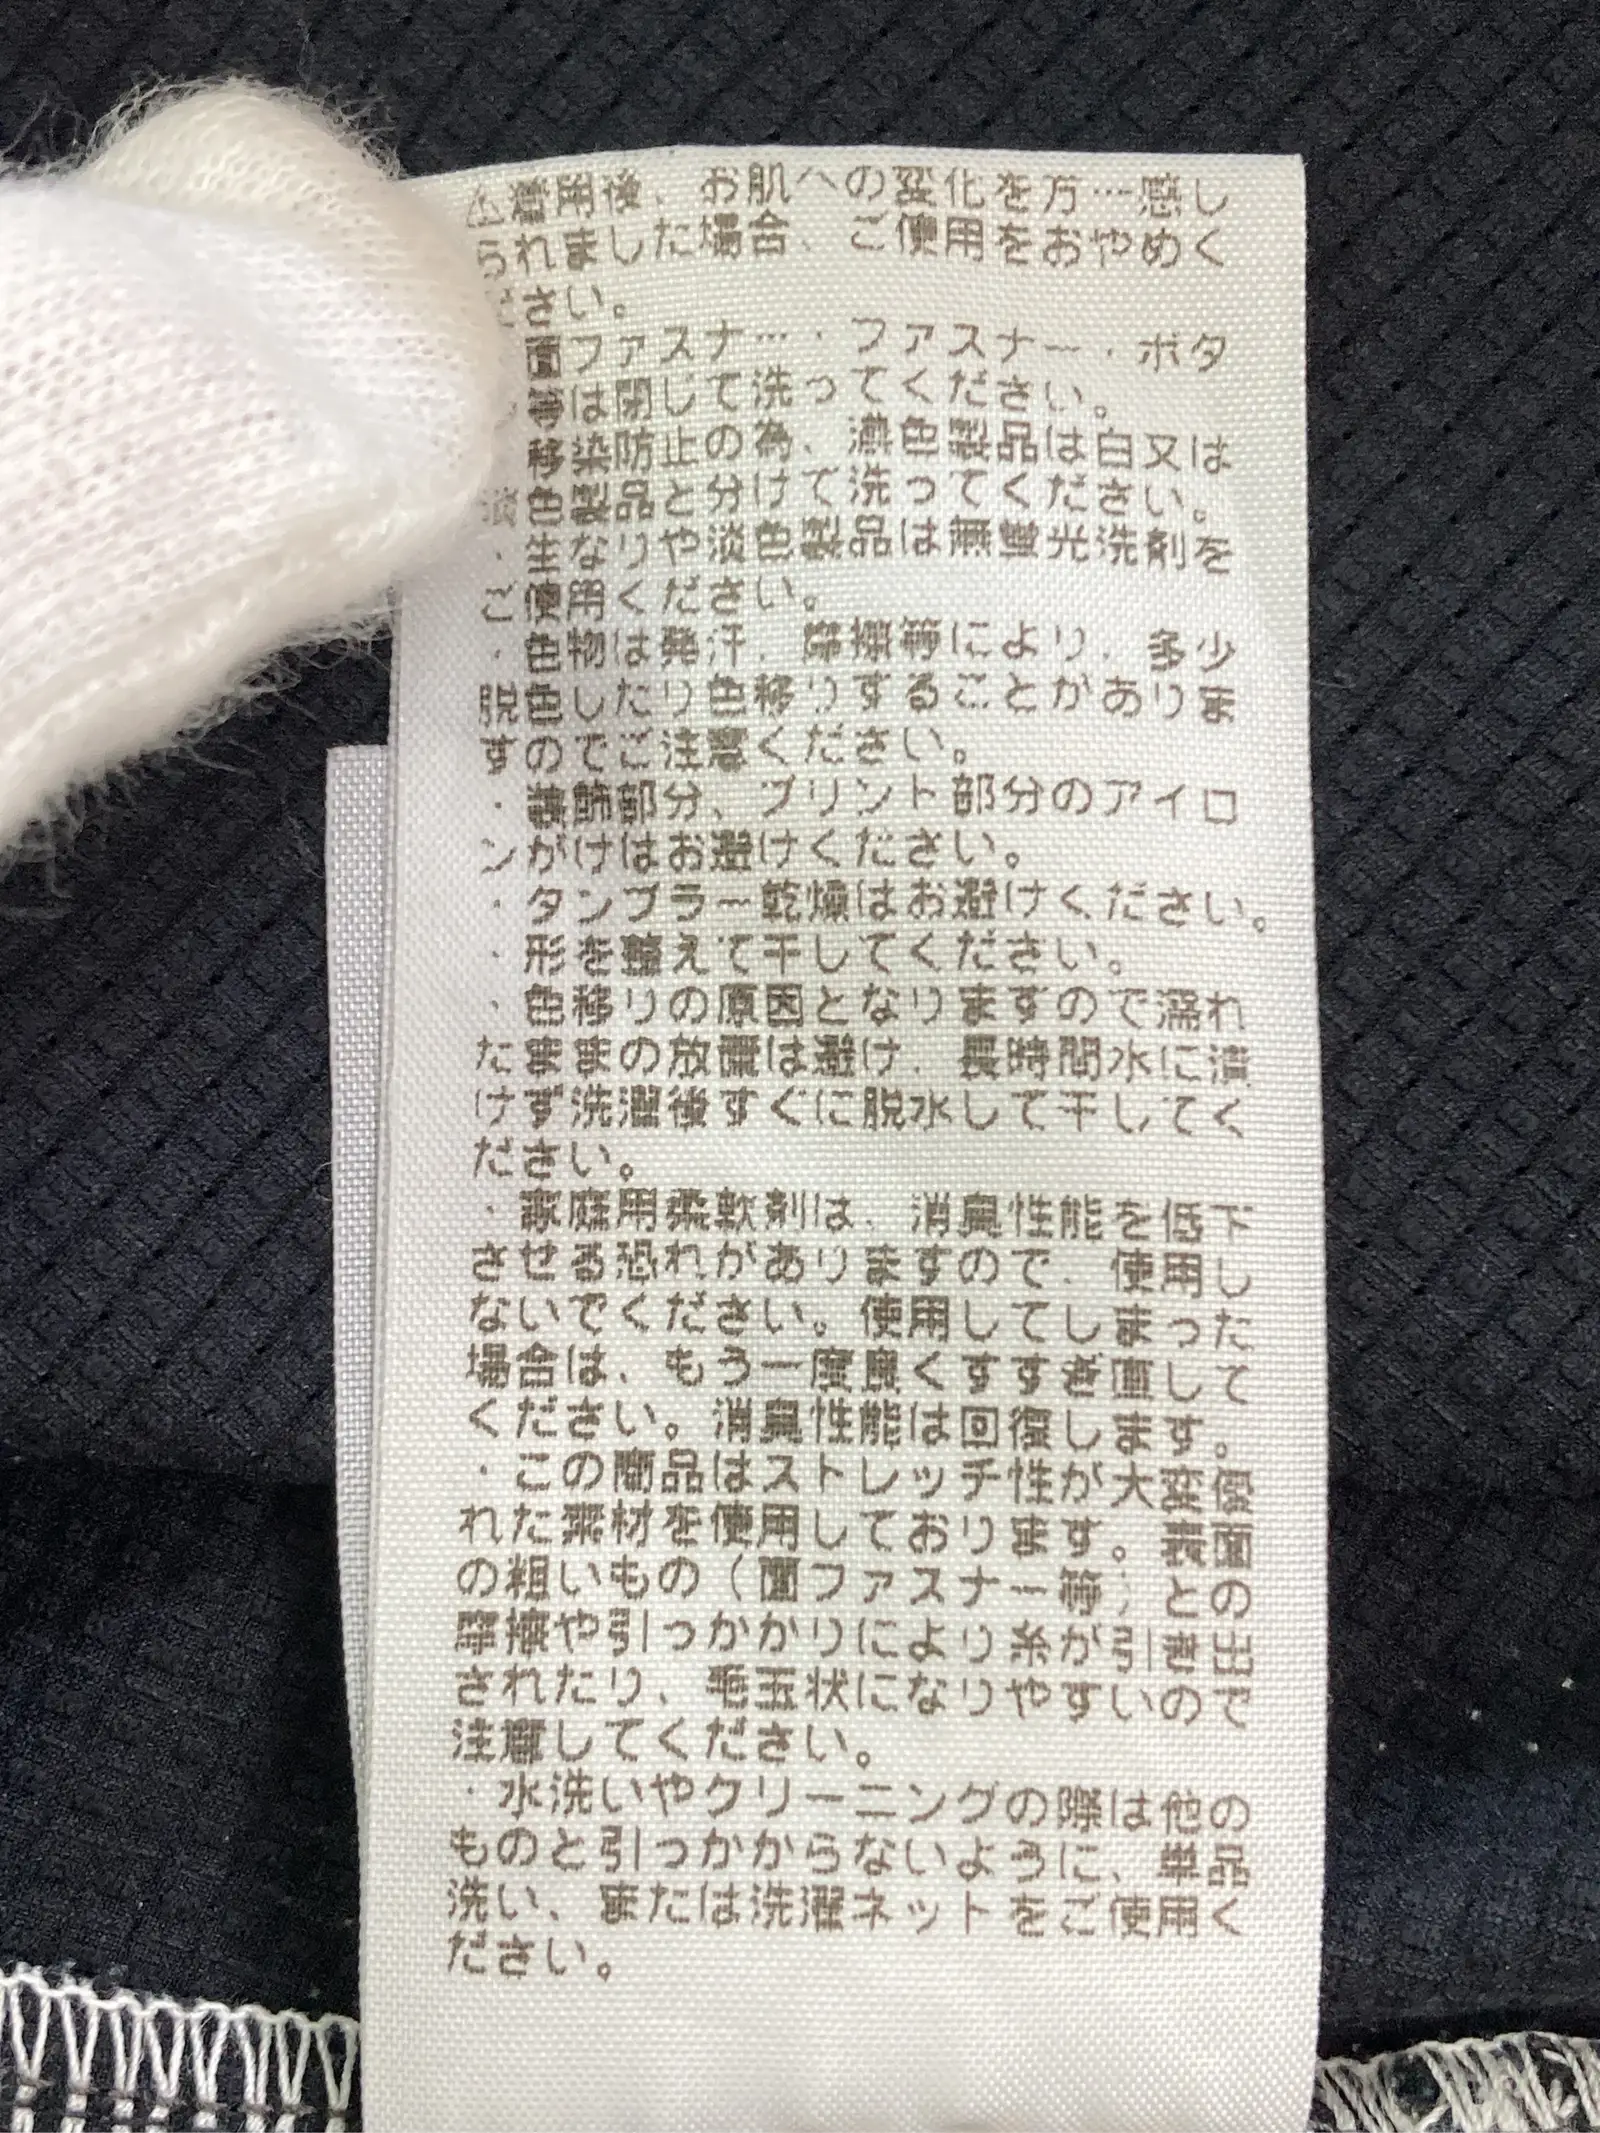 ⚠着用後、お肌への変化を万一感じ
られました場合、ご使用をおやめく
ださい。
面ファスナー・ファスナー・ボタ
等は閉じて洗ってください。
移染防止の為、濃色製品は白又は
淡色製品と分けて洗ってください。
・生なりや淡色製品は無蛍光洗剤を
ご使用ください。
・色物は発汗、摩擦等により、多少
脱色したり色移りすることがありま
すのでご注意ください。
・装飾部分、プリント部分のアイロ
ンがけはお避けください。
・タンブラー乾燥はお避けください。
・形を整えて干してください。
・色移りの原因となりますので濡れ
たままの放置は避け、長時間水に漬
けず洗濯後すぐに脱水して干してく
ださい。
・家庭用柔軟剤は、消臭性能を低下
させる恐れがありますので、使用し
ないでください。使用してしまった
場合は、もう一度良くすすぎ直して
ください。消臭性能は回復します。
・この商品はストレッチ性が大変優
れた素材を使用しております。表面
の粗いもの（面ファスナー等）との
摩擦や引っかかりにより糸が引き出
されたり、毛玉状になりやすいので
注意してください。
・水洗いやクリーニングの際は他の
ものと引っかからないように、単品
洗い、または洗濯ネットをご使用く
ださい。